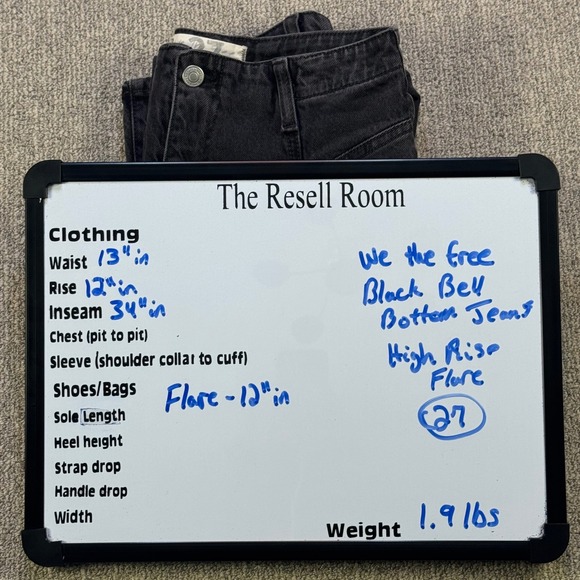 27
The Resell Room
Clothing
Waist 13" in
Rise 12" in
Inseam 34" in
Chest (pit to pit)
Sleeve (shoulder collar to cuff)
Shoes/Bags
Flare - 12" in
Sole Length
Heel height
Strap drop
Handle drop
Width
We the free
Black Bell
Bottom Jeans
High Rise
Flare
27
Weight 1.9 lbs